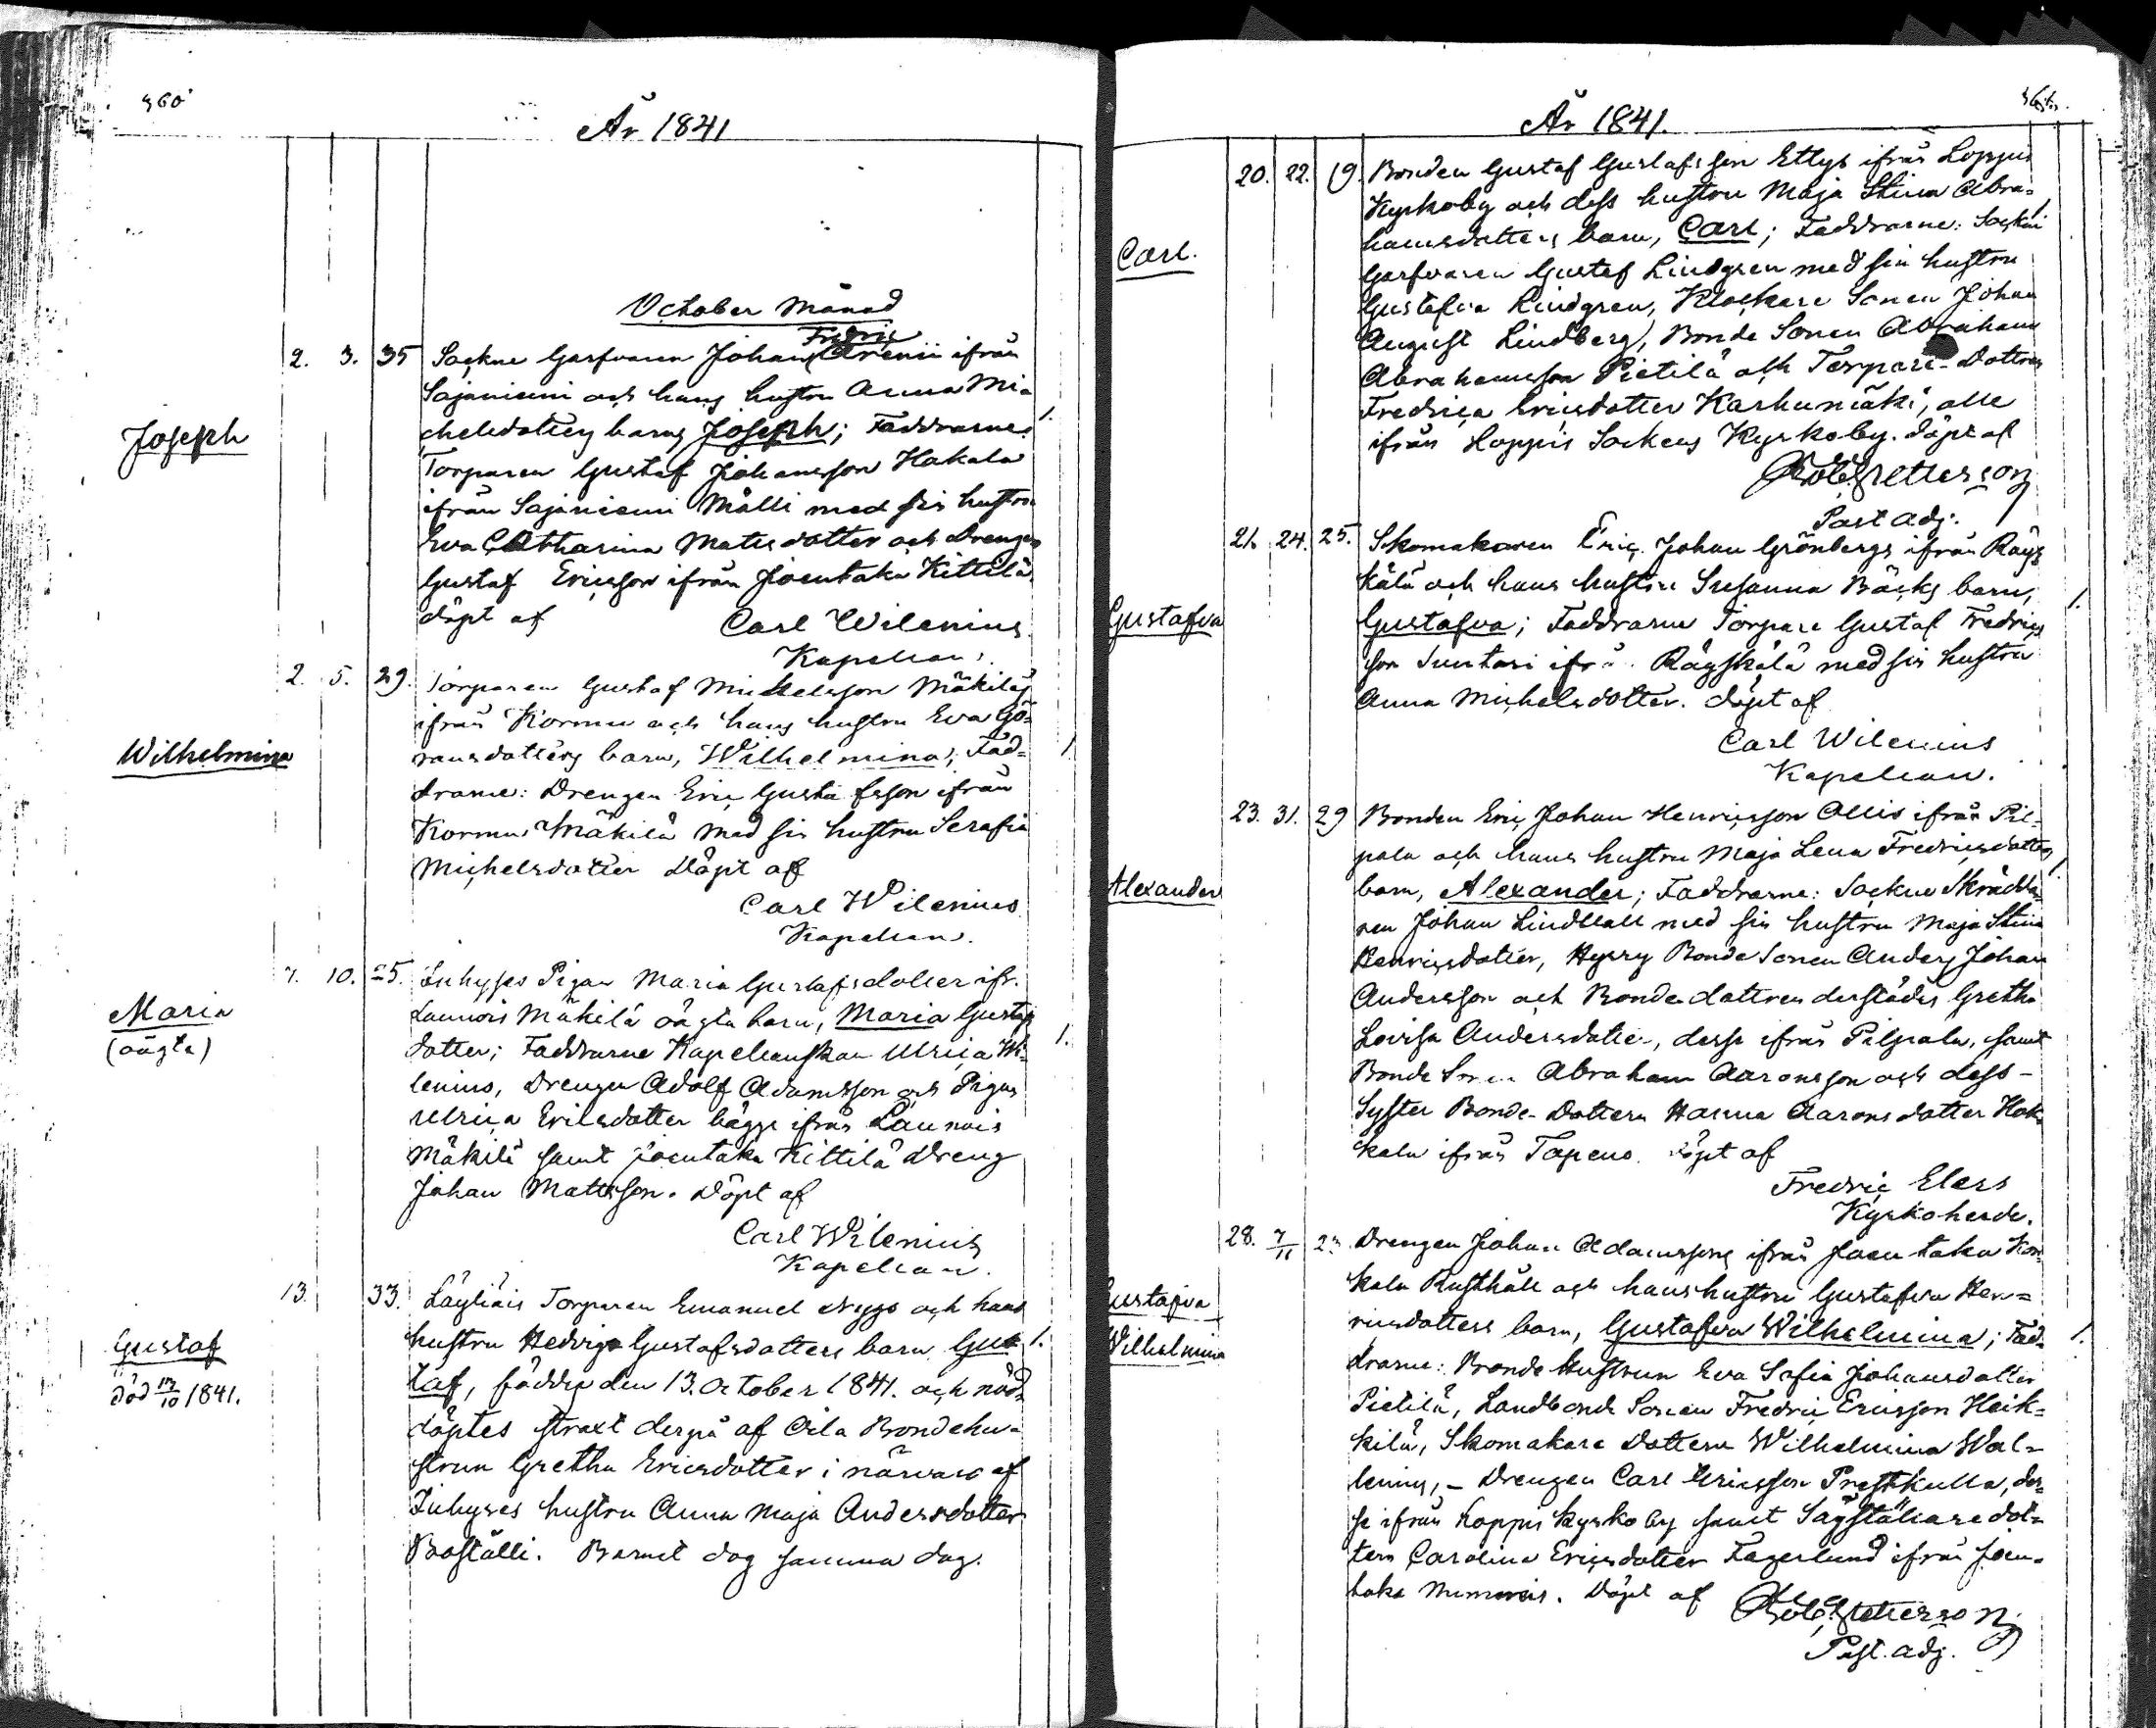 360
År 1841
October Månad
Fredric
2. 3. 35 Sockne Garfvaren Johan Arenii ifrån
Sajaniemi och hans hustru Anna Mi-
chelsdotters barn, Joseph; Faddrarne: 1.
Joseph
Torparen Gustaf Johansson Hakala
ifrån Sajaniemi Mälli med sin hustru
Eva Catharina Matsdotter och Drengen
Gustaf Ericsson ifrån Joentaka Kittilä
döpt af Carl Wilenius
Kapellan.
2. 5. 29. Torparen Gustaf Michelsson Mäkiläs
ifrån Kormu och hans hustru Eva Gö-
ransdotters barn, Wilhelmina; Fad= 1.
Wilhelmina
drarne: Drengen Eric Gustafsson ifrån
Kormu Mäkilä med sin hustru Serafia
Michelsdotter Döpt af
Carl Wilenius
Kapellan.
7. 10. 25. Inhyses Pigan Maria Gustafsdotter ifr.
Launois Mäkilä oägta barn, Maria Gustafs
Maria
(oägta)
dotter; Faddrarne Kapellanskan Ulrica Wi- 1.
lenius, Drengen Adolf Adamsson och Pigan
Ulrica Ericsdotter bägge ifrån Launois
Mäkilä samt Joentaka Kittilä Dreng
Johan Mattsson. Döpt af
Carl Wilenius
Kapellan.
13. 33. Läyliäis Torparen Emanuel Nygs och hans
hustru Hedvig Gustafsdotters barn Gus- 1.
Gustaf
död 13/10 1841.
taf, föddes den 13. October 1841. och nöd-
döptes straxt derpå af Oila Bondehu-
strun Gretha Ericsdotter i närvaro af
Inhyses hustru Anna Maja Andersdotter
Boställi. Barnet dog samma dag.
År 1841.
20. 22. 19. Bonden Gustaf Gustafsson Ettys ifrån Loppis
Kyrkoby och dess hustru Maja Stina Abra= 1.
hamsdotters barn, Carl; Faddrarne: Sockne
Carl.
Garfvaren Gustaf Lindgren med sin hustru
Gustafva Lindgren, Klockare Sonen Johan
August Lindberg, Bonde Sonen Abraham
Abrahamsson Pietilä och Torpare-Dottren
Fredrica Ericsdotter Karhumäki, alle
ifrån Loppis Sockens Kyrkoby. döpt af
Petterson
Past adj.
21. 24. 25. Skomakaren Eric Johan Grönbergs ifrån Räys
kälä och hans hustru Susanna Bäcks barn, 1.
Gustafva
Gustafva; Faddrarne Torpare Gustaf Fredrics
son Suntari ifrå Räyskälä med sin hustru
Anna Michelsdotter. döpt af
Carl Wilenius
Kapellan.
23. 31. 29 Bonden Eric Johan Henricsson Ollis ifrån Pil-
pala och hans hustru Maja Lena Fredricsdotters 1.
barn, Alexander; Faddrarne: Sockne Skrädda
Alexander
ren Johan Lindblall med sin hustru Maja Stina
Henricsdotter, Hyrry Bonde Sonen Anders Johan
Andersson och Bondedottren derstädes Gretha
Lovisa Andersdotter, desse ifrån Pilpala, samt
Bonde Sonen Abraham Aaronsson och dess-
Syster Bonde-Dottern Hanna Aaronsdotter Hak
kala ifrån Topeno. döpt af
Fredric Elers
Kyrkoherde.
28. 7/11 23. Drengen Johan Adamssons ifrån Joentaka Kos
kela Rusthåll och hans hustru Gustafva Hen=
ricsdotters barn, Gustafva Wilhelmina; Fad- 1.
Gustafva
Wilhelmina
drarne: Bonde hustrun Eva Sofia Johansdotter
Pietilä, Landbonde Sonen Fredric Ericsson Heik=
kilä, Skomakare Dottern Wilhelmina Wal=
lenius, - Drengen Carl Ericsson Prestkulla, des-
se ifrån Loppis Kyrkoby samt Sågställaredot=
tern Carolina Ericsdotter Fagerlund ifrån Joen-
taka . Döpt af Petterson
Past. adj.